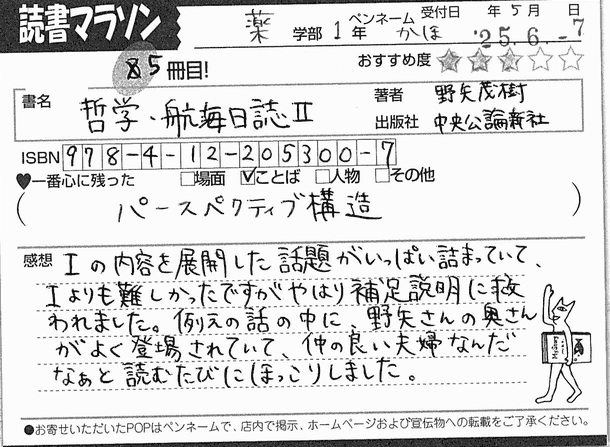 読書マラソン
薬 学部 1 年 ペンネーム かほ 受付日 年 5 月 日
'25.6.-7
85冊目!
おすすめ度 ★★★☆☆
書名 哲学・航海日誌Ⅱ
著者 野矢茂樹
出版社 中央公論新社
ISBN 978-4-12-205300-7
♥一番心に残った □場面 ☑ことば □人物 □その他
(パースペクティブ構造)
感想 Ⅰの内容を展開した話題がいっぱい詰まっていて、
Ⅰよりも難しかったですがやはり補足説明に救
われました。例えの話の中に、野矢さんの奥さん
がよく登場されていて、仲の良い夫婦なんだ
なぁと読むたびにほっこりしました。
●お寄せいただいたPOPはペンネームで、店内で掲示、ホームページおよび宣伝物への転載をご了承ください。